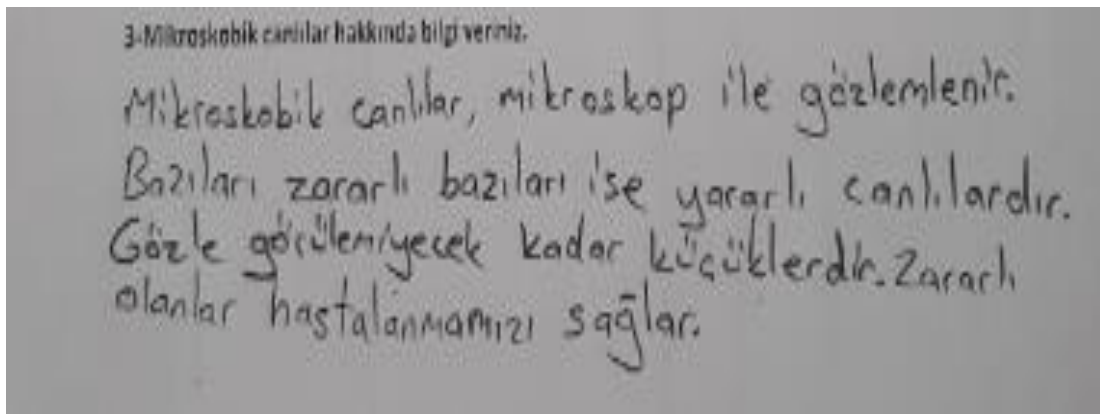 3-Mikroskobik canlılar hakkında bilgi veriniz.
Mikroskobik canlılar, mikroskop ile gözlemlenir.
Bazıları zararlı bazıları ise yararlı canlılardır.
Gözle görülemiyecek kadar küçüklerdir. Zararlı
olanlar hastalanmamızı sağlar.